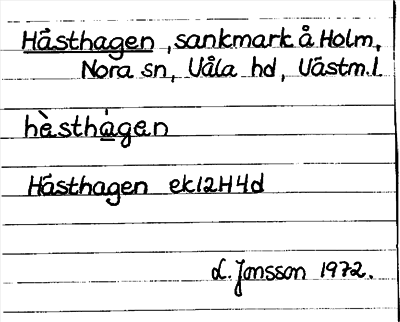 Hästhagen, sankmark å Holm,
Nora sn, Våla hd, Västm.l.
hὲsthàgen
Hästhagen ek12H4d
L. Jonsson 1972.